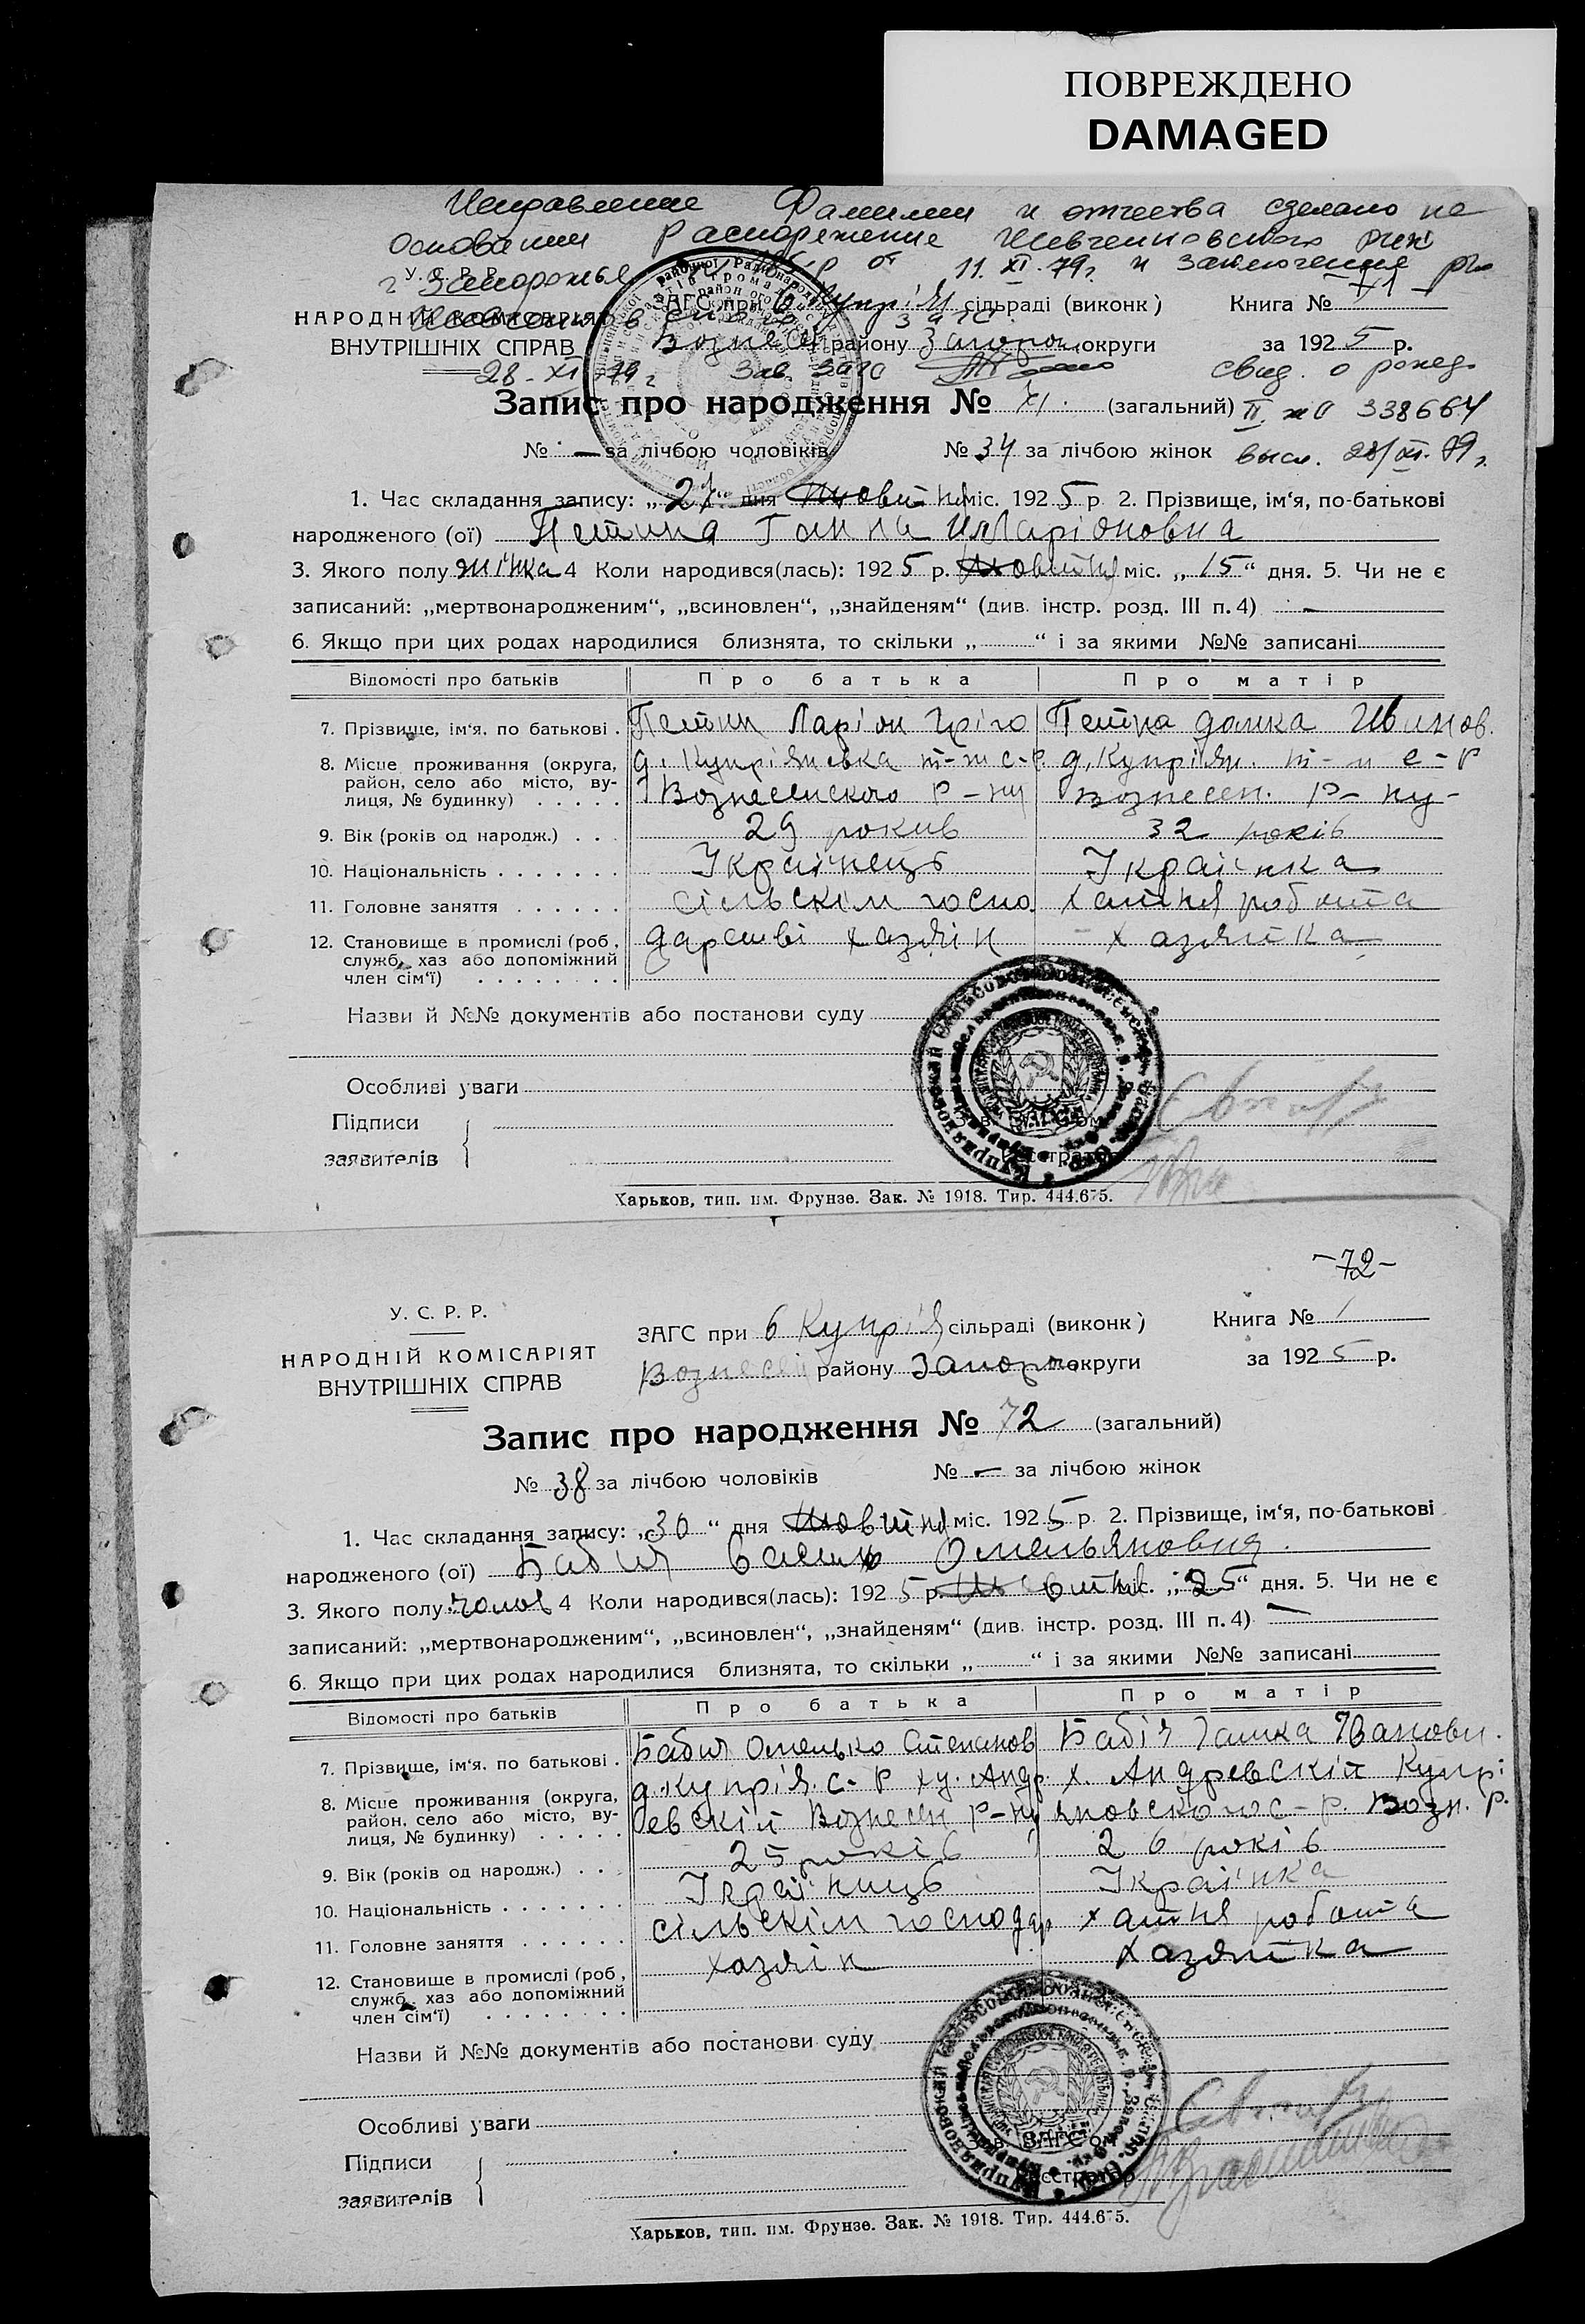 ПОВРЕЖДЕНО
DAMAGED
Исправление Фамилии и отчества сделано на
основании Распоряжение Шевченковского
г Запорожье от 11. XI. 79г и заключения
У. С. Р. Р.
НАРОДНІЙ КОМІСАРІЯТ
ВНУТРІШНІХ СПРАВ
ЗАГС при 6 Купрія сільраді (виконк)
Книга № 1
Вознесен району Запорож округи
за 1925 р.
28-XI 79 г Зав. Загс
свид. о рожд.
Запис про народження № 71. (загальний)
II 338664
№ — за лічбою чоловіків
№ 34 за лічбою жінок
28/XI. 79 г.
1. Час складання запису: „27“ дня Жовтня міс. 1925 р 2. Прізвище, ім‘я, по-батькові
народженого (ої) Петина Ганна Илларіоновна
3. Якого полу жінка 4 Коли народився(лась): 1925 р. Жовтня міс. „15“ дня. 5. Чи не є
записаний: „мертвонародженим“, „всиновлен“, „знайденям“ (див. інстр. розд. III п. 4) —
6. Якщо при цих родах народилися близнята, то скільки „ “ і за якими №№ записані
Відомості про батьків Про батька Про матір
7. Прізвище, ім‘я, по батькові . Петин Ларіон Гріго Петна домка Иванов.
8. Місце проживання (округа, район, село або місто, вулиця, № будинку) д. Купріянівка с-р Вознесенского р-ну д. Купріян. с-р вознесен. р-ну
9. Вік (років од народж.) . . . 29 рокив 32 років
10. Національність . . . . . . . Україінець Україінка
11. Головне заняття . . . . . . сільскім госпо хатня работа
12. Становище в промислі (роб, служб, хаз або допоміжний член сім‘ї) . . . . . . . . дарстві хазяін хазяйка
Назви й №№ документів або постанови суду
Особливі уваги
Підписи
заявителів
Зав. ЗАГС‘ом
Реєстратор
Харьков, тип. им. Фрунзе. Зак. № 1918. Тир. 444.675.
-72-
У. С. Р. Р.
НАРОДНІЙ КОМІСАРІЯТ
ВНУТРІШНІХ СПРАВ
ЗАГС при 6 Купрія сільраді (виконк)
Книга № 1
Вознесен району Запорож округи
за 1925 р.
Запис про народження № 72 (загальний)
№ 38 за лічбою чоловіків
№ — за лічбою жінок
1. Час складання запису: „30“ дня Жовтня міс. 1925 р 2. Прізвище, ім‘я, по-батькові
народженого (ої) Бабия Омельяновия
3. Якого полу чолов 4 Коли народився(лась): 1925 р. Жовтня міс. „25“ дня. 5. Чи не є
записаний: „мертвонародженим“, „всиновлен“, „знайденям“ (див. інстр. розд. III п. 4) —
6. Якщо при цих родах народилися близнята, то скільки „ “ і за якими №№ записані
Відомості про батьків Про батька Про матір
7. Прізвище, ім‘я, по батькові . Бабия Омелько Степанов Бабія Ганка Іванови.
8. Місце проживання (округа, район, село або місто, вулиця, № будинку) д. Купрія. с-р ху. Андревскій Вознесен р-ну х. Андревскій Купріяновского с-р. Возн. р.
9. Вік (років од народж.) . . 25 років 26 років
10. Національність . . . . . . . Україіниць Україінка
11. Головне заняття . . . . . . сільскім господар хатня работа
12. Становище в промислі (роб, служб, хаз або допоміжний член сім‘ї) . . . . . . . . хазяін хазяйка
Назви й №№ документів або постанови суду
Особливі уваги
Підписи
заявителів
Зав. ЗАГС‘ом
Реєстратор
Харьков, тип. им. Фрунзе. Зак. № 1918. Тир. 444.675.